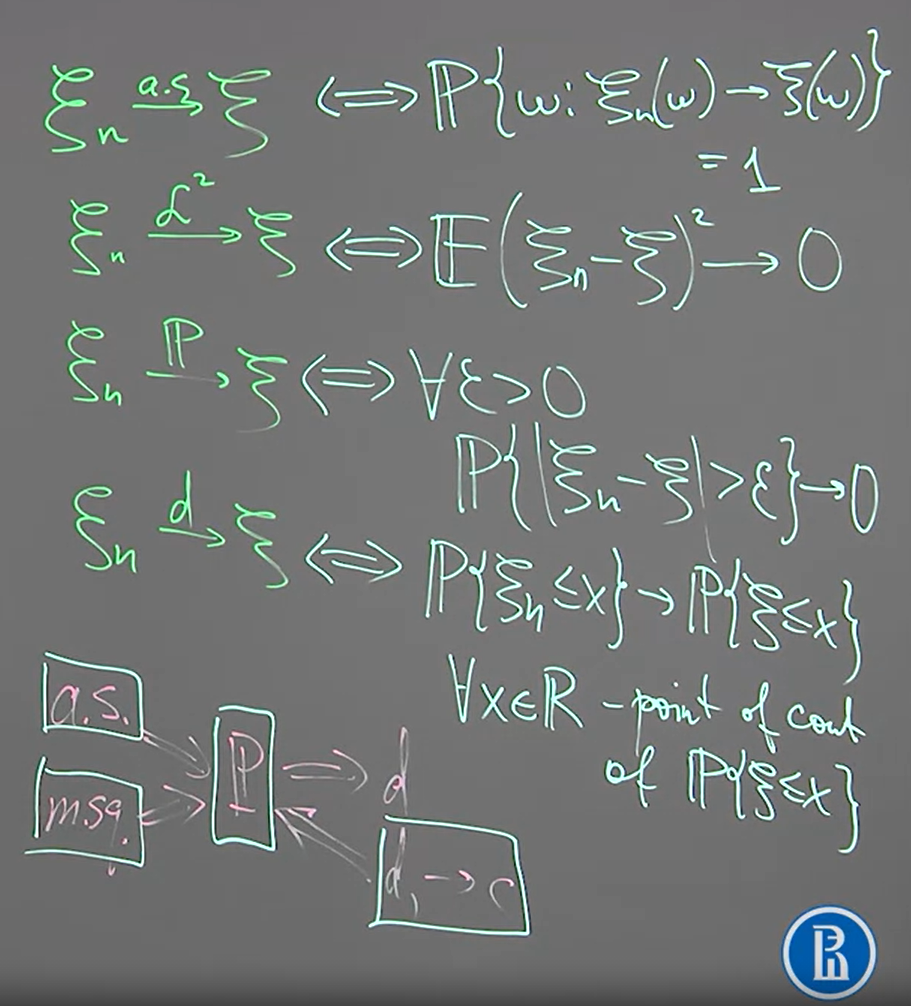 ξₙ a.s.→ ξ ⟺ ℙ{ω: ξₙ(ω) → ξ(ω)}
= 1
ξₙ ℒ²→ ξ ⟺ 𝔼(ξₙ - ξ)² → 0
ξₙ ℙ→ ξ ⟺ ∀ε > 0
ℙ{|ξₙ - ξ| > ε} → 0
ξₙ d→ ξ ⟺ ℙ{ξₙ ≤ x} → ℙ{ξ ≤ x}
∀x∈ℝ - point of cont
of ℙ{ξ ≤ x}
a.s.
ℙ ⟹ d
m.sq.
d, → c